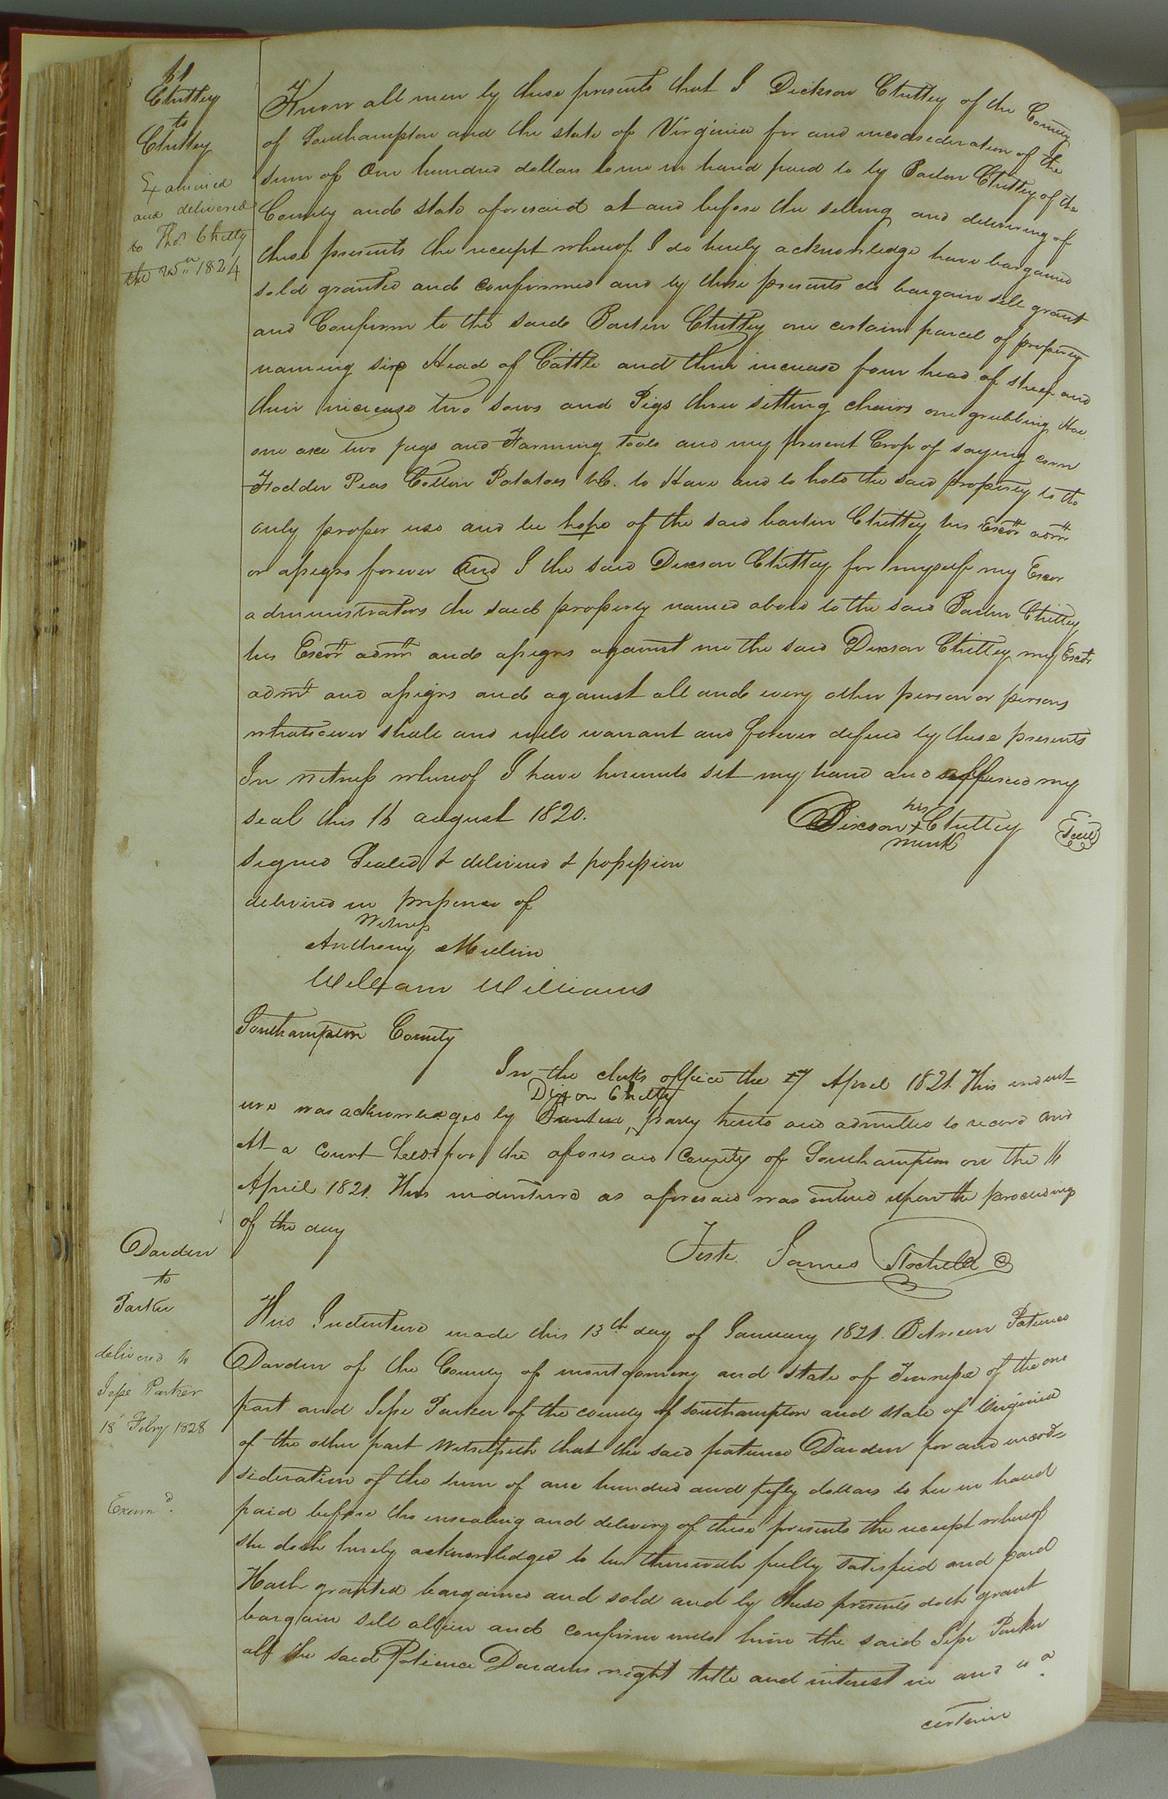 Chittey
to
Chittey
Examined
and delivered
to Thos Chitty
the 1824
Know all men by these presents that I Dickson Chittey of the County
of Southampton and the state of Virginia for and inconsideration of the
sum of One hundred dollars to me in hand paid to by Barten Chittey of the
County and state aforesaid at and before the selling and delivering of
these presents the receipt whereof I do hereby acknowledge have bargained
sold granted and confirmed and by these presents do bargain sell grant
and Confirm to the said Barten Chittey one certain parcel of property
naming six Head of Cattle and their increase four head of sheep and
their increase two sows and Pigs three sitting chairs one grubbing Hoe
one axe two jugs and Farming Tools and my present Crop of saying corn
Fodder Peas Cotton Potatoes &C. to Have and to hold the said property to the
only proper use and be hope of the said barten Chittey his Excrs admrs
or assigns forever And I the said Dixson Chittey for myself my Excr
administrators the said property named above to the said Barten Chittey
his Excrs admrs and assigns against me the said Dixson Chittey my Excrs
admrs and assigns and against all and every other person or persons
whatsoever shall and will warrant and forever defend by these presents
In witness whereof I have hereunto set my hand and affixed my
seal this 16 august 1820.
his
Dixson + Chittey Seal
mark
Signed Sealed & delivered & possession
delivered in presence of
Witness
Anthony
William Williams
Southampton County
In the clerks office the 17 April 1821. This indent=
Dixon Chitty
ure was acknowledged by Barten, party hereto and admitted to record and
At a court held for the aforesaid County of Southampton on the 16
April 1821. This indenture as aforesaid was entered upon the proceedings
of the day
Teste James Rochelle C
Darden
to
Parker
delivered to
Jesse Parker
18 Febry 1828
Examd.
This Indenture made this 13th day of January 1821. Between Patience
Darden of the County of montgomery and state of Tennessee of the one
part and Jesse Parker of the county of Southampton and state of Virginia
of the other part Witnesseth that the said patience Darden for and incon=
sideration of the sum of one hundred and fifty dollars to her in hand
paid before the ensealing and delivery of these presents the receipt whereof
she doth hereby acknowledged to be therewith fully satisfied and paid
Hath granted bargained and sold and by these presents doth grant
bargain sell alien and confirm unto him the said Jesse Parker
all the said Patience Dardens right title and interest in and to a
certain